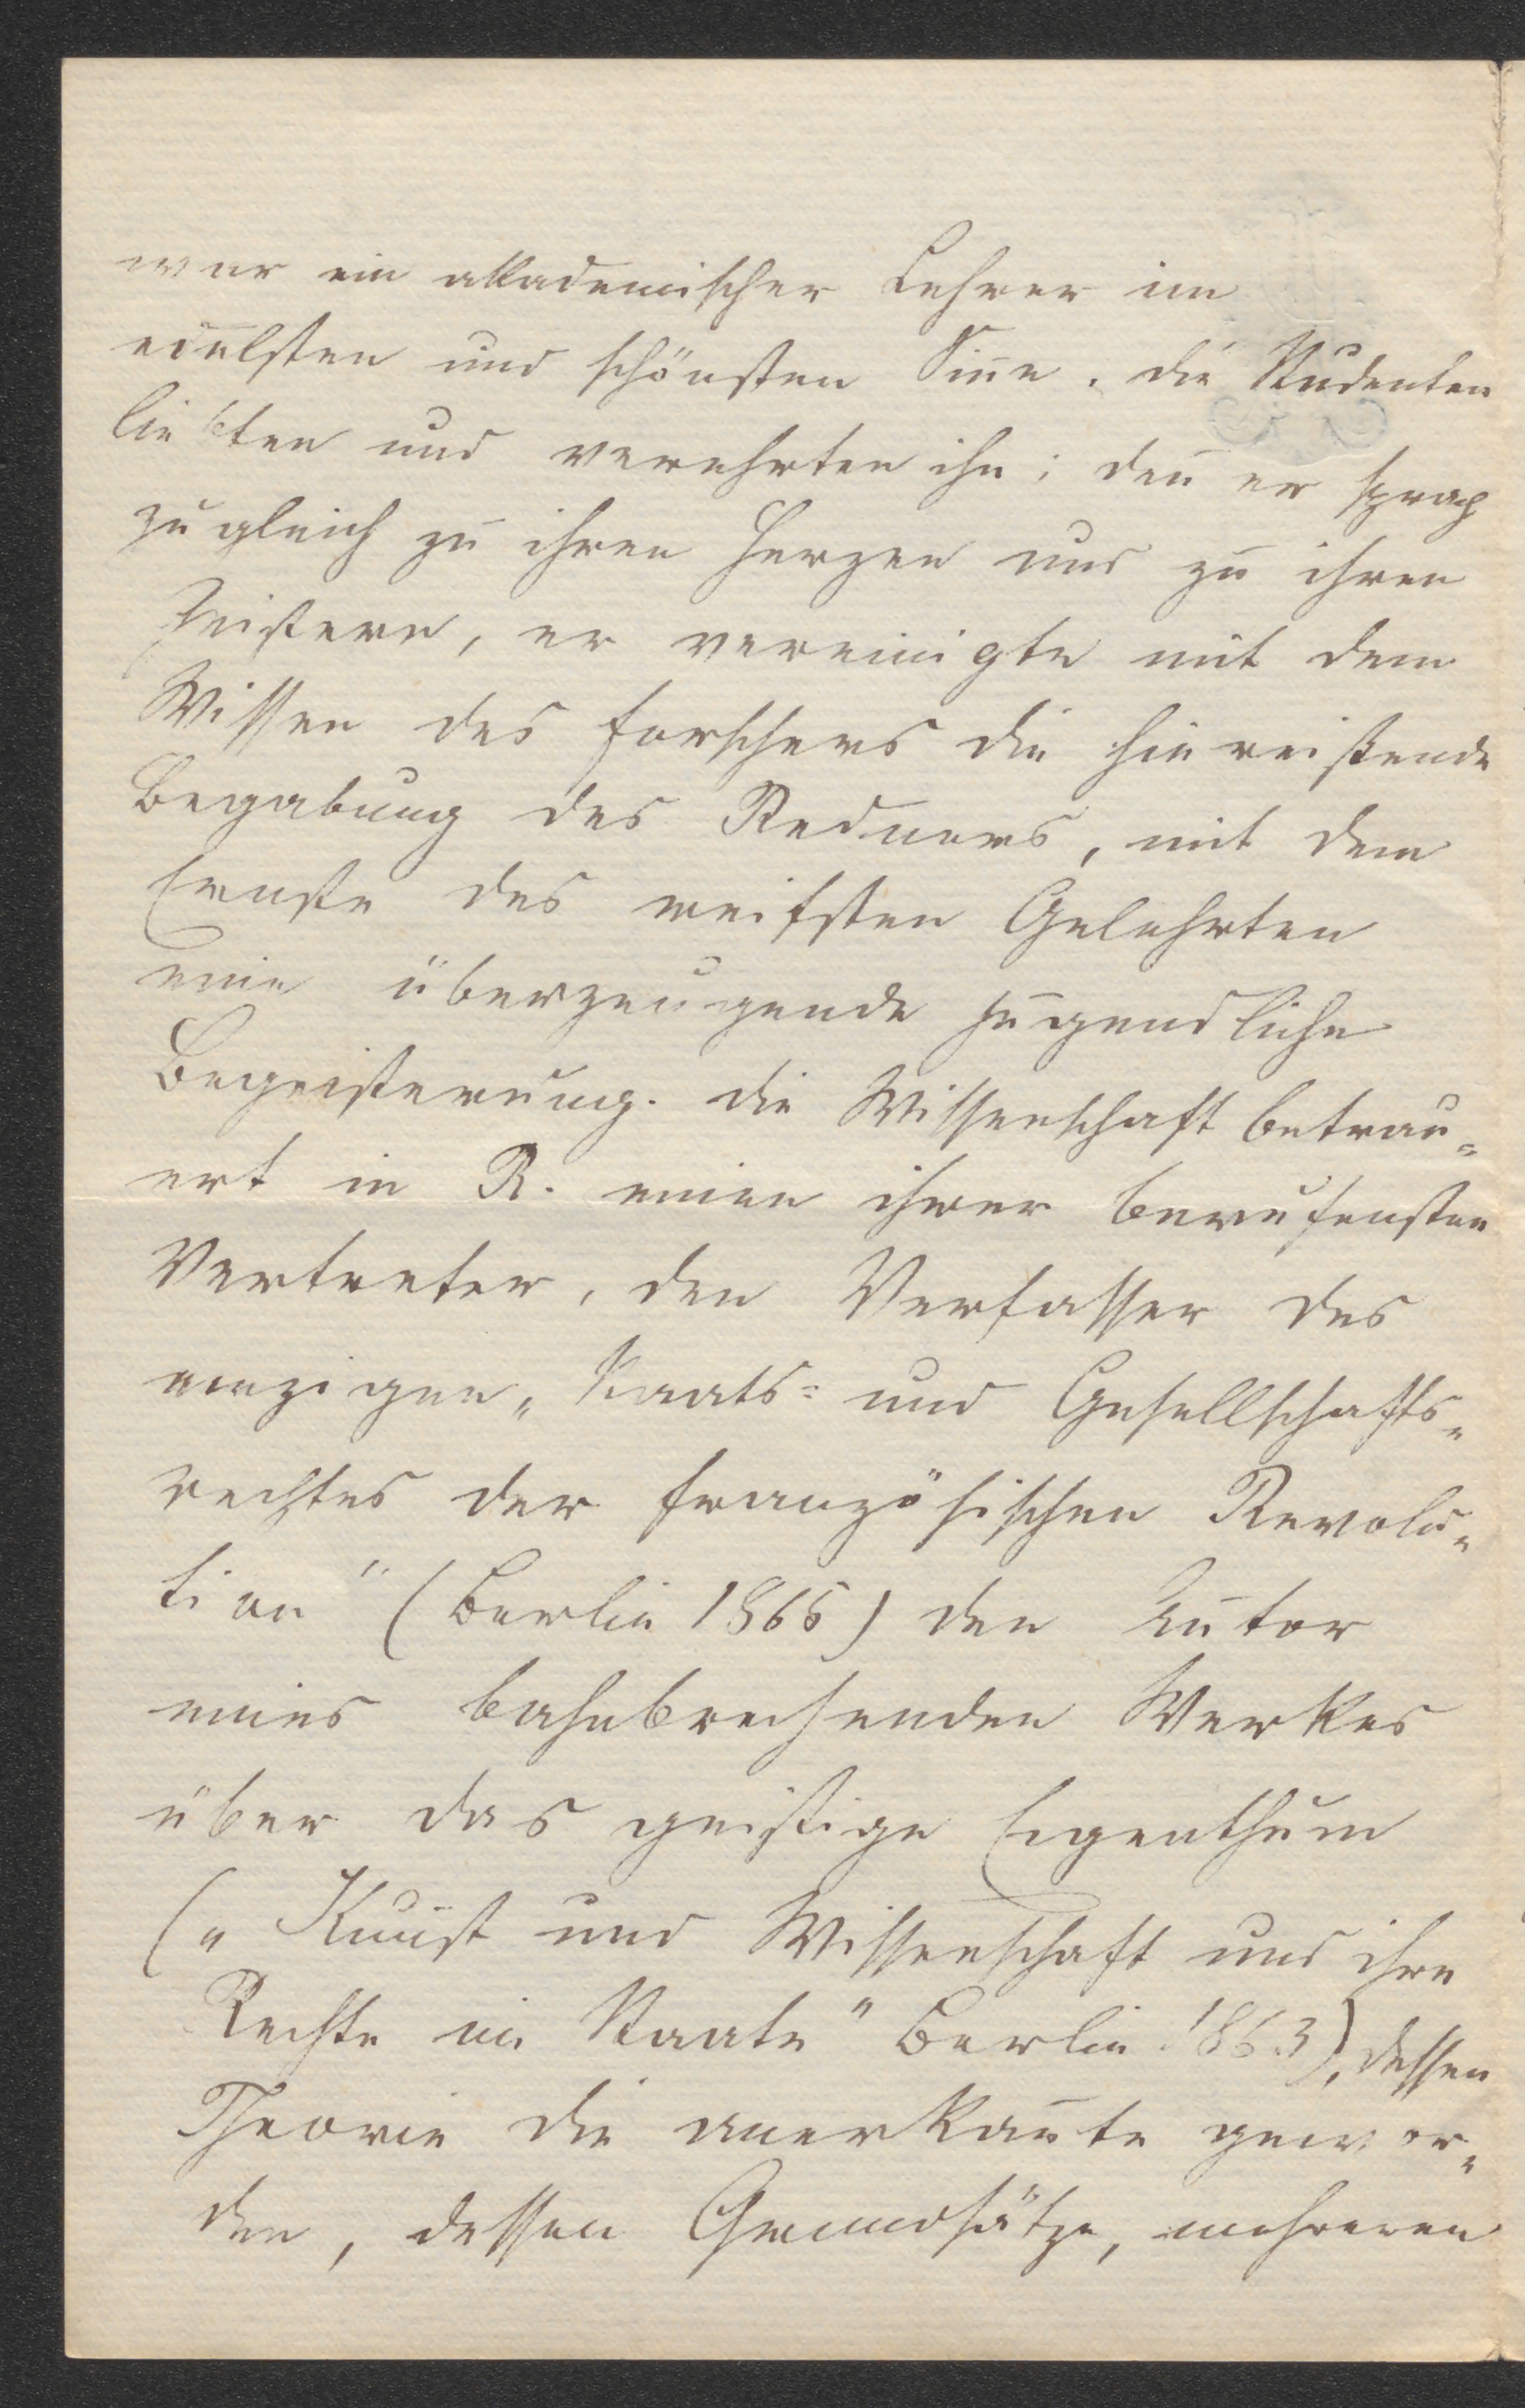 war ein akademischer Lehrer im
edelsten und schönsten Sinne. Die Studenten
liebten und verehrten ihn; denn er sprach
zugleich zu ihren Herzen und zu ihren
Geistern, er vereinigte mit dem
Wissen des Forschers die hinreißende
Begabung des Redners, mit dem
Ernste des reifsten Gelehrten
eine überzeugende jugendliche
Begeisterung. Die Wissenschaft betrau=
ert in R. einen ihrer berufensten
Vertreter, den Verfasser des
einzigen „Staats= und Gesellschafts=
rechtes der französischen Revolu=
tion" (Berlin 1865) den Autor
eines bahnbrechenden Werkes
über das geistige Eigenthum
(„Kunst und Wissenschaft und ihre
Rechte im Staate" Berlin 1863), dessen
Theorie die anerkannte gewor=
den, dessen Grundsätze, mehreren